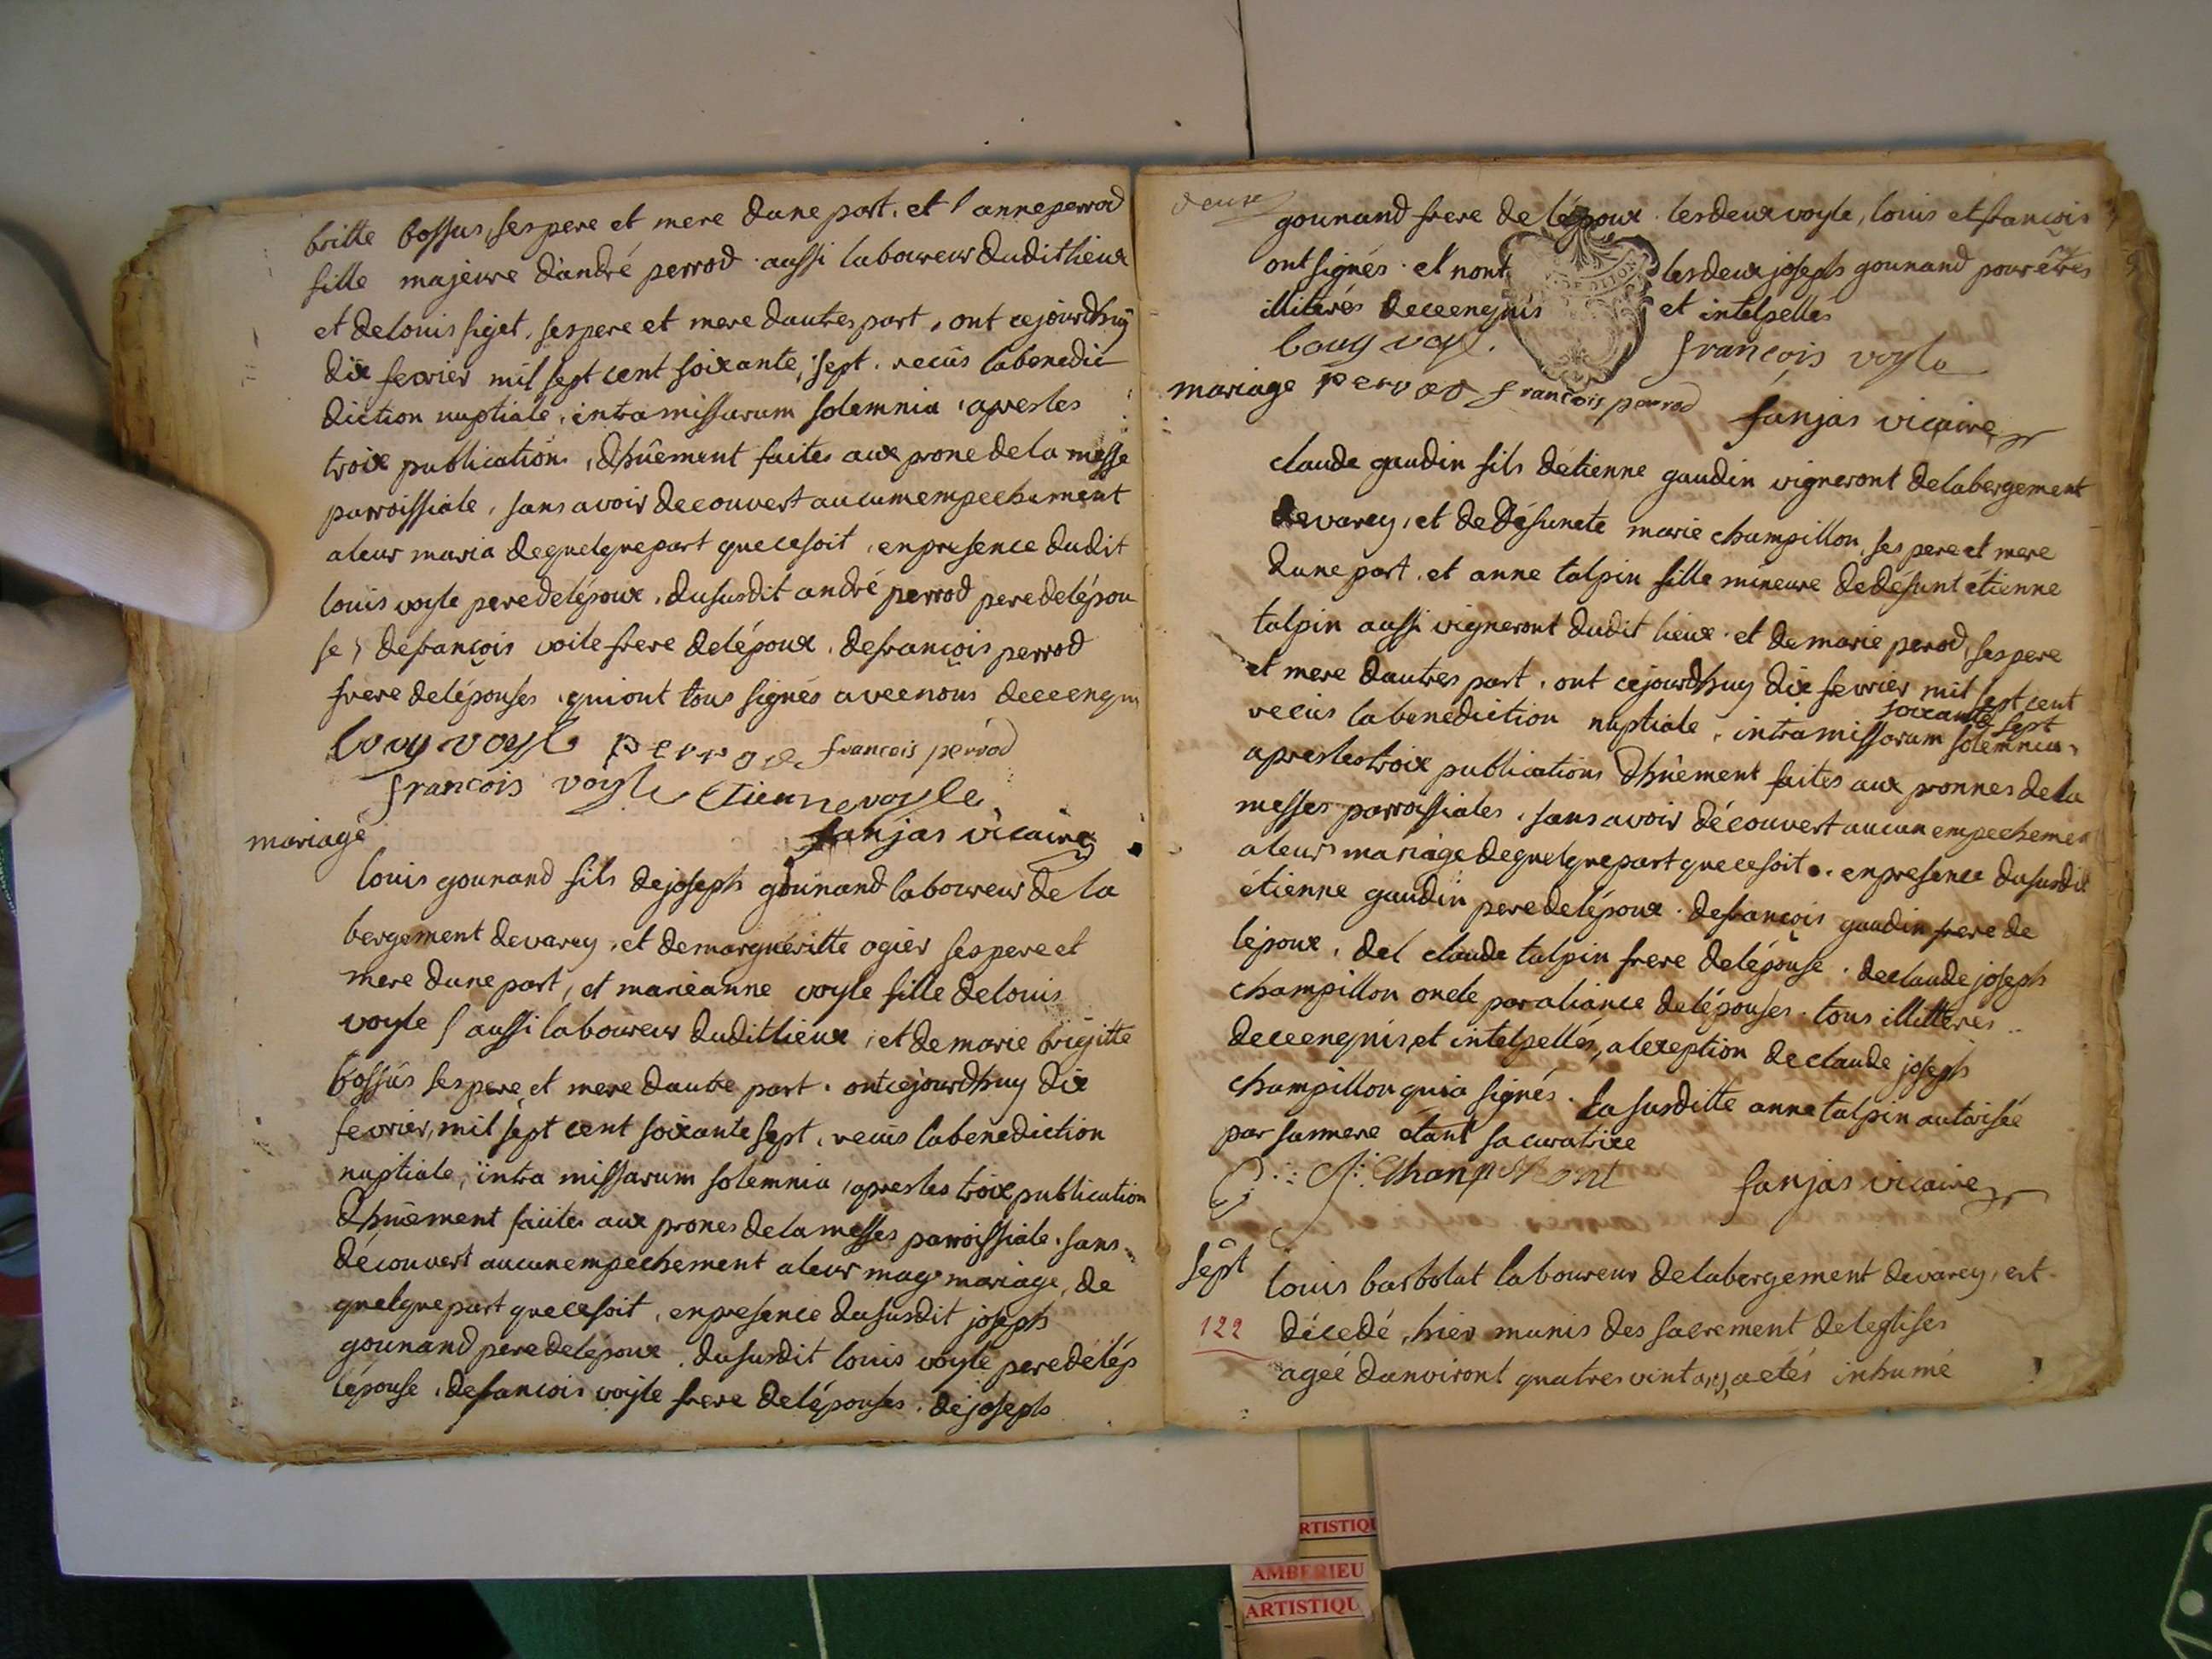 britte bossus, ses pere et mere dune part. et anne perrod
fille majeure d'andré perrod aussi laboureur dudit lieux
et de louis siget, ses pere et mere dautres part, ont cejourdhuy
dix fevrier mil sept cent soixante, sept. recüs la benedic
diction nuptiale, intra missarum solemnia, apres les
troix publications, dhûement faites aux prone de la messe
parroissiale, sans avoir decouvert aucum empechement
a leur maria de quelque part que ce soit, en presence dudit
louis voyle pere de lépoux, du susdit andré perrod pere de lépou
se, de francois voile frere de lépoux, de francois perrod
frere de lépouses, qui ont tous signés avec nous de ce enqui
louy voyle perrod francois perrod
francois voyle Etienne voyle
mariage
fanjas vicaire
louis gounand fils de joseph gounand laboureur de la
bergement de varey, et de marguéritte ogier ses pere et
mere dune part, et marieanne voyle fille de louis
voyle aussi laboureur dudit lieux, et de marie brigitte
bossus ses pere et mere dautre part. ont cejourdhuy dix
fevrier, mil sept cent soixante sept, recüs la benediction
nuptiale, intra missarum solemnia, apres les troix publication
dhuêment faites aux prones de la messes parroissiale, sans
découvert aucun empechement a leur mag mariage, de
quelque part que ce soit, en presence du susdit joseph
gounand pere de lepoux, du susdit louis voyle pere de lép
lépouse, de francois voyle frere de lépouses, de joseph
gounand frere de lépoux. les deux voyle, louis et francois
ont signés et nont les deux josephs gounand pour êtres
illiterés de ce enquis et intelpellés
louy voyl. francois voyle
mariage perrod francois perrod
fanjas vicaire
claude gaudin fils détienne gaudin vigneront de labergement
de varey, et de défuncte marie champillon, ses pere et mere
dune part, et anne talpin fille mineure de défunt étienne
talpin aussi vigneront dudit lieux et de marie perod, ses pere
et mere dautres part, ont cejourdhuy dix fevrier mil sept cent
soixante sept
recüs la benediction nuptiale, intra missarum solemnia,
apres les troix publications dhuement faites aux pronnes de la
messes parroissiales, sans avoir découvert aucun empechemen
a leur mariage de quelque part que ce soit. en presence du susdit
étienne gaudin pere de lépoux, de francois gaudin frere de
lépoux, del claude talpin frere de lépouse, de claude joseph
champillon oncle par aliance de lépouses. tous illitteres
de ce enquis, et intelpellés, a lexeption de claude joseph
champillon qui a signés. La susditte anne talpin autorisée
par sa mere étant sa curatrice
fanjas vicaire
sept
louis barbolat laboureur de labergement de varey, est
122
décedé, hier munis des sacrement de leglises
ageé danviront quatres vint ans, a etés inhumé